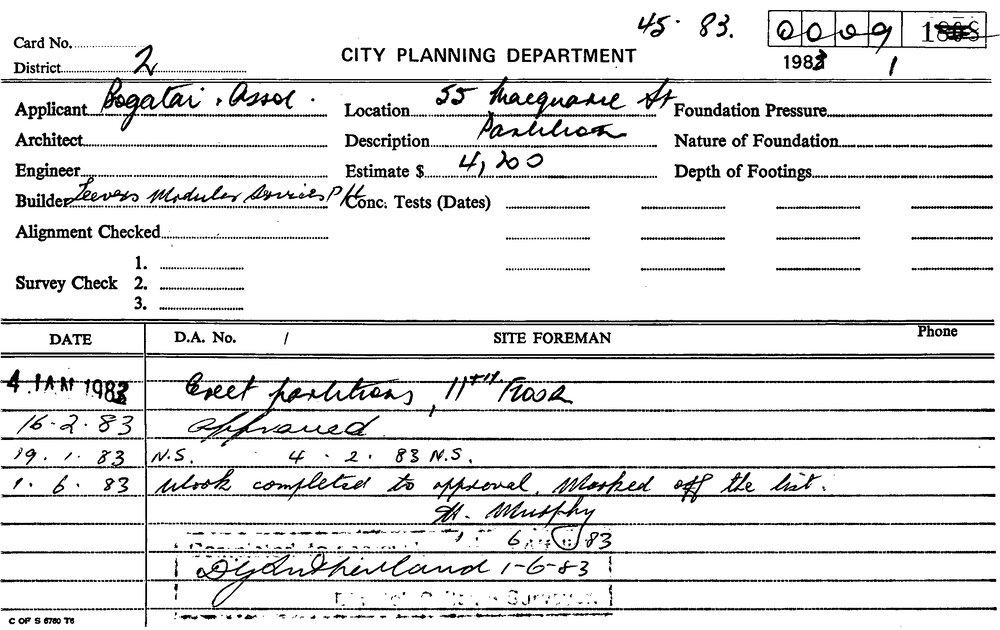 45. 83. 0009
Card No.
District 2 CITY PLANNING DEPARTMENT 1983 1
Applicant Bogatai . Assoc . Location 55 Macquarie St Foundation Pressure
Architect Description Partitions Nature of Foundation
Engineer Estimate $ 4,200 Depth of Footings
Builder Leevers Modular Services P/L Conc. Tests (Dates)
Alignment Checked
1.
Survey Check 2.
3.
DATE D.A. No. / SITE FOREMAN Phone
4 JAN 1983 Erect partitions, 11th Floor
16.2.83 approved
19.1.83 N.S. 4.2.83 N.S.
1.6.83 Work completed to approval. Marked off the list.
H. Murphy
1 6 83
D G Sutherland 1-6-83
C OF S 6760 T6